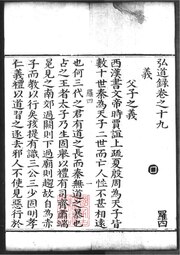 弘道錄卷之十九 羅四
義
父子之義
西漢書文帝時賈誼上疏夏殷周為天子皆
數十世秦為天子二世而亡人性不甚相遠
也何三代之君有道之長而秦無道之暴也
古之王者太子乃生固舉以禮有司齊肅端
冕見之南郊過闕則下過廟則趨故自為赤
子而教以行矣孩提有識三公三少固明孝
仁義禮以道習之逐去邪人不使見惡行於
羅四